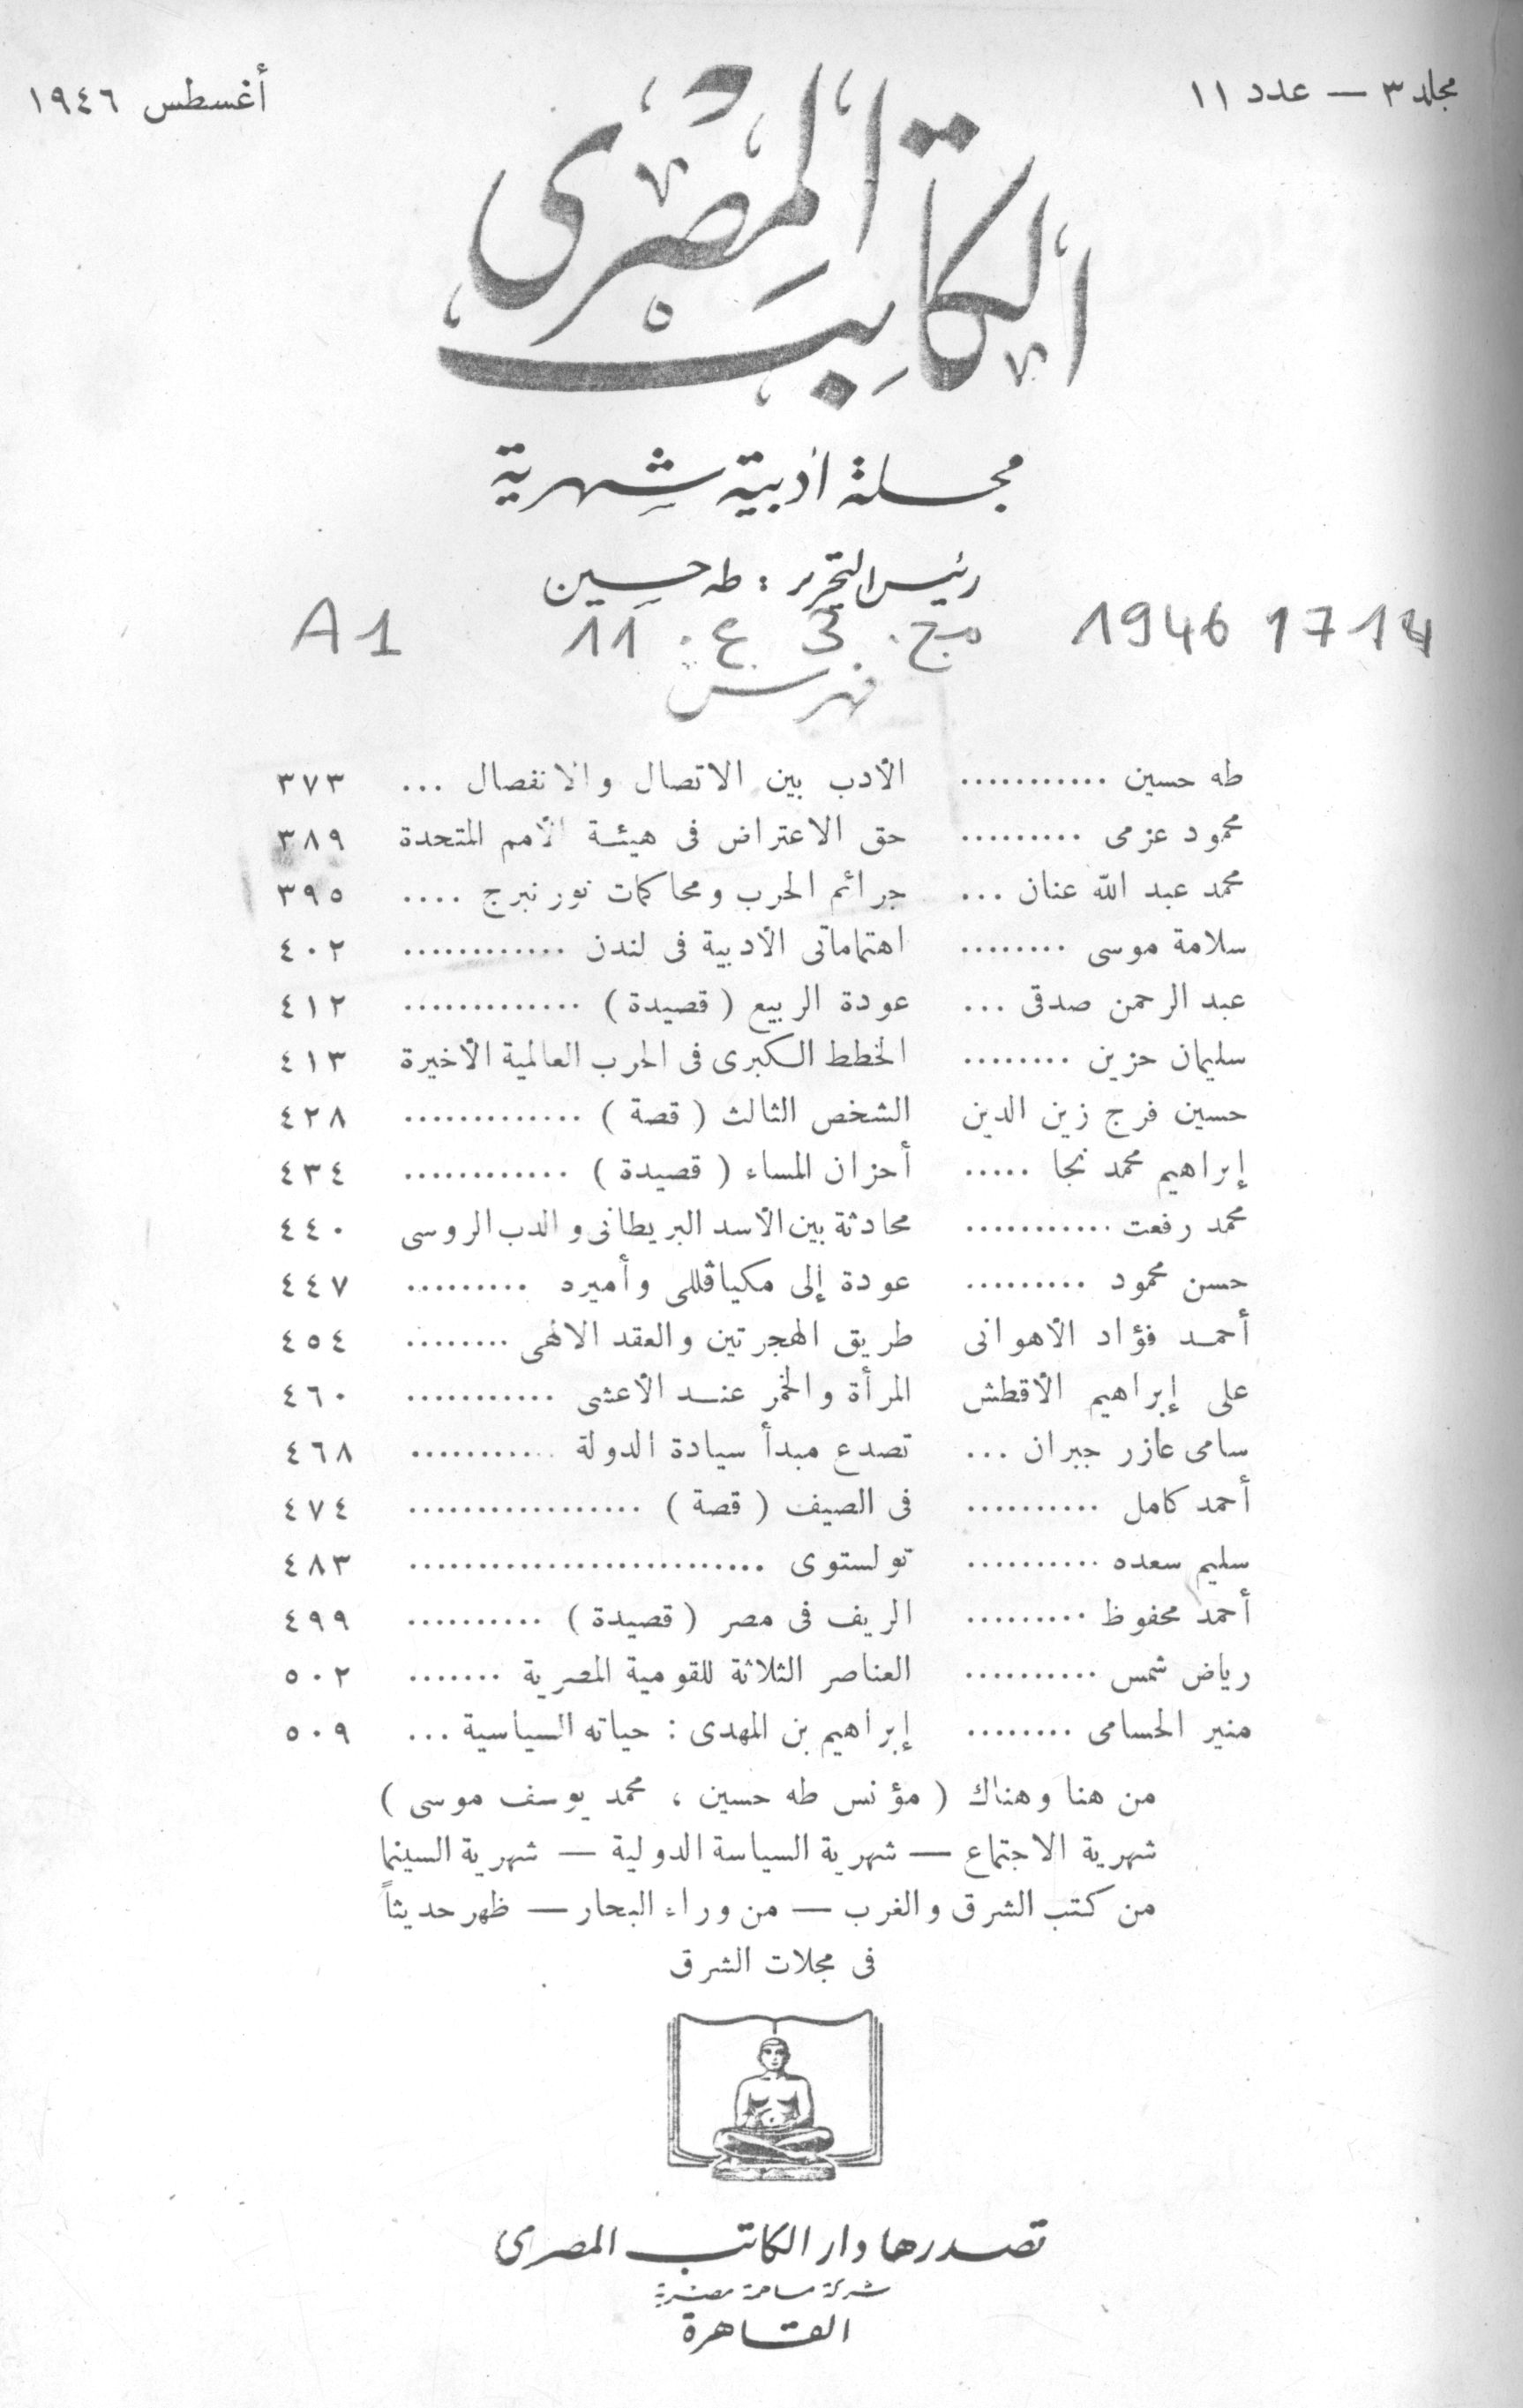 مجلد ٣ — عدد ١١ أغسطس ١٩٤٦
الكاتب المصرى
مجلة أدبية شهرية
رئيس التحرير : طه حسين
1946 1714 مج. 3 ع. 11 A1
فهرس
طه حسين ........... الأدب بين الاتصال والانفصال ... ٣٧٣
محمود عزمى ......... حق الاعتراض فى هيئة الأمم المتحدة ٣٨٩
محمد عبد الله عنان ... جرائم الحرب ومحاكمات نورنبرج .... ٣٩٥
سلامة موسى ........ اهتماماتى الأدبية فى لندن ............ ٤٠٢
عبد الرحمن صدقى ... عودة الربيع ( قصيدة ) ............. ٤١٢
سليمان حزين ........ الخطط الكبرى فى الحرب العالمية الأخيرة ٤١٣
حسين فرج زين الدين الشخص الثالث ( قصة ) ............. ٤٢٨
إبراهيم محمد نجا ..... أحزان المساء ( قصيدة ) ............ ٤٣٤
محمد رفعت ........... محادثة بين الأسد البريطانى والدب الروسى ٤٤٠
حسن محمود ......... عودة إلى مكياڤللى وأميره ......... ٤٤٧
أحمد فؤاد الأهوانى طريق الهجرتين والعقد الالهى ........ ٤٥٤
على إبراهيم الأقطش المرأة والخمر عند الأعشى ........... ٤٦٠
سامى عازر جبران ... تصدع مبدأ سيادة الدولة ........... ٤٦٨
أحمد كامل .......... فى الصيف ( قصة ) ................. ٤٧٤
سليم سعده .......... تولستوى .......................... ٤٨٣
أحمد محفوظ ......... الريف فى مصر ( قصيدة ) .......... ٤٩٩
رياض شمس .......... العناصر الثلاثة للقومية المصرية ....... ٥٠٢
منير الحسامى ........ إبراهيم بن المهدى : حياته السياسية ... ٥٠٩
من هنا وهناك ( مؤنس طه حسين ، محمد يوسف موسى )
شهرية الاجتماع — شهرية السياسة الدولية — شهرية السينما
من كتب الشرق والغرب — من وراء البحار — ظهر حديثاً
فى مجلات الشرق
تصدرها دار الكاتب المصرى
شركة مساهمة مصرية
القاهرة